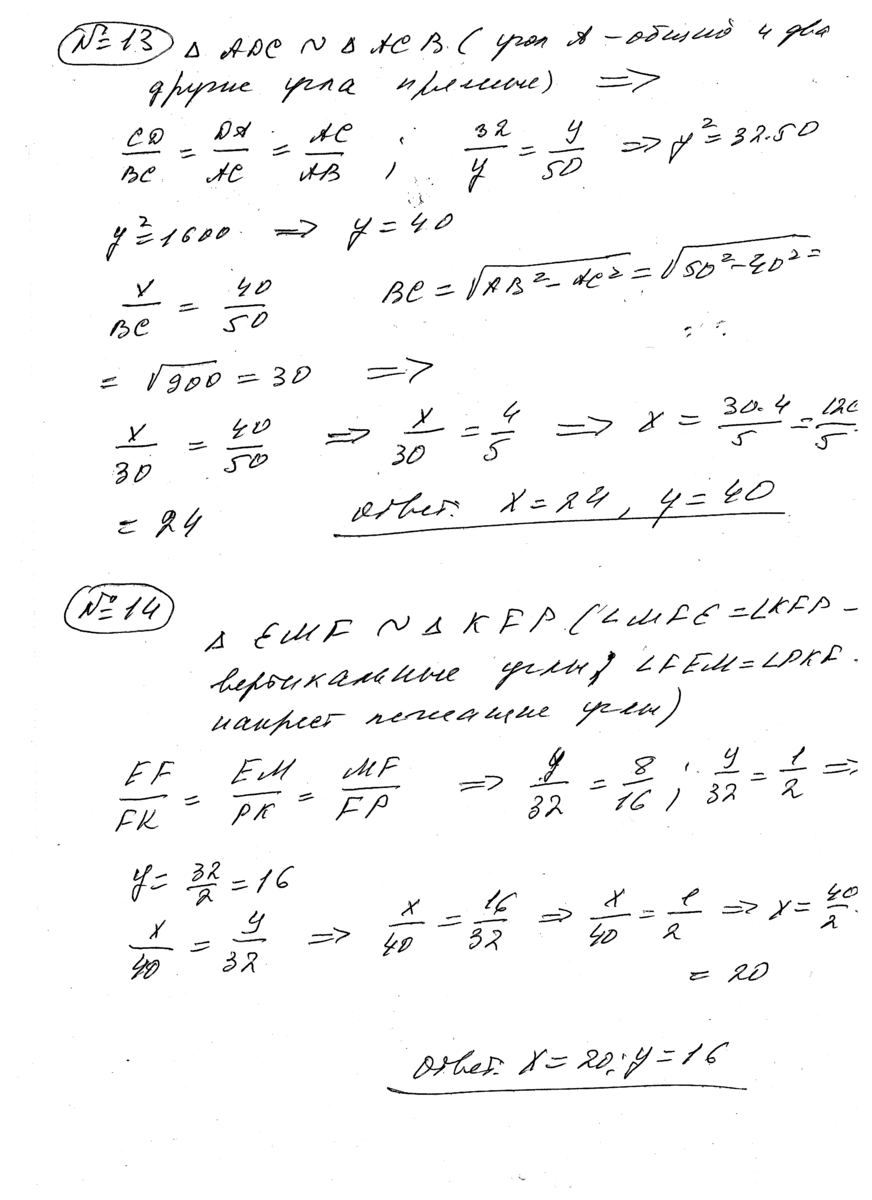 №13 Δ ADC ~ Δ ACB. ( угол A - общий и два
другие угла прямые) =>
CD/BC = DA/AC = AC/AB ; 32/y = y/50 => y² = 32·50
y² = 1600 => y = 40
x/BC = 40/50 BC = √(AB² - AC²) = √(50² - 40²) =
= √900 = 30 =>
x/30 = 40/50 => x/30 = 4/5 => x = 30·4/5 = 120/5
= 24 ответ. x = 24, y = 40
№14
Δ EMF ~ Δ KFP. (∠MFE = ∠KFP -
вертикальные углы; ∠FEM = ∠PKF.
накрест лежащие углы)
EF/FK = EM/PK = MF/FP => y/32 = 8/16 ; y/32 = 1/2 =>
y = 32/2 = 16
x/40 = y/32 => x/40 = 16/32 => x/40 = 1/2 => x = 40/2
= 20
ответ. x = 20; y = 16